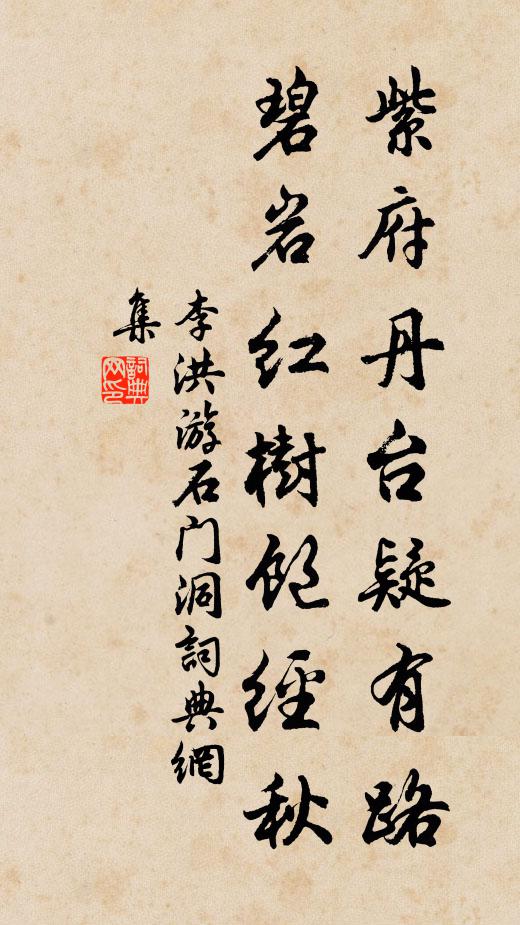 紫府丹台疑有路
碧岩红樹飽經秋
李洪游石门洞詞典網
集
詞典网印